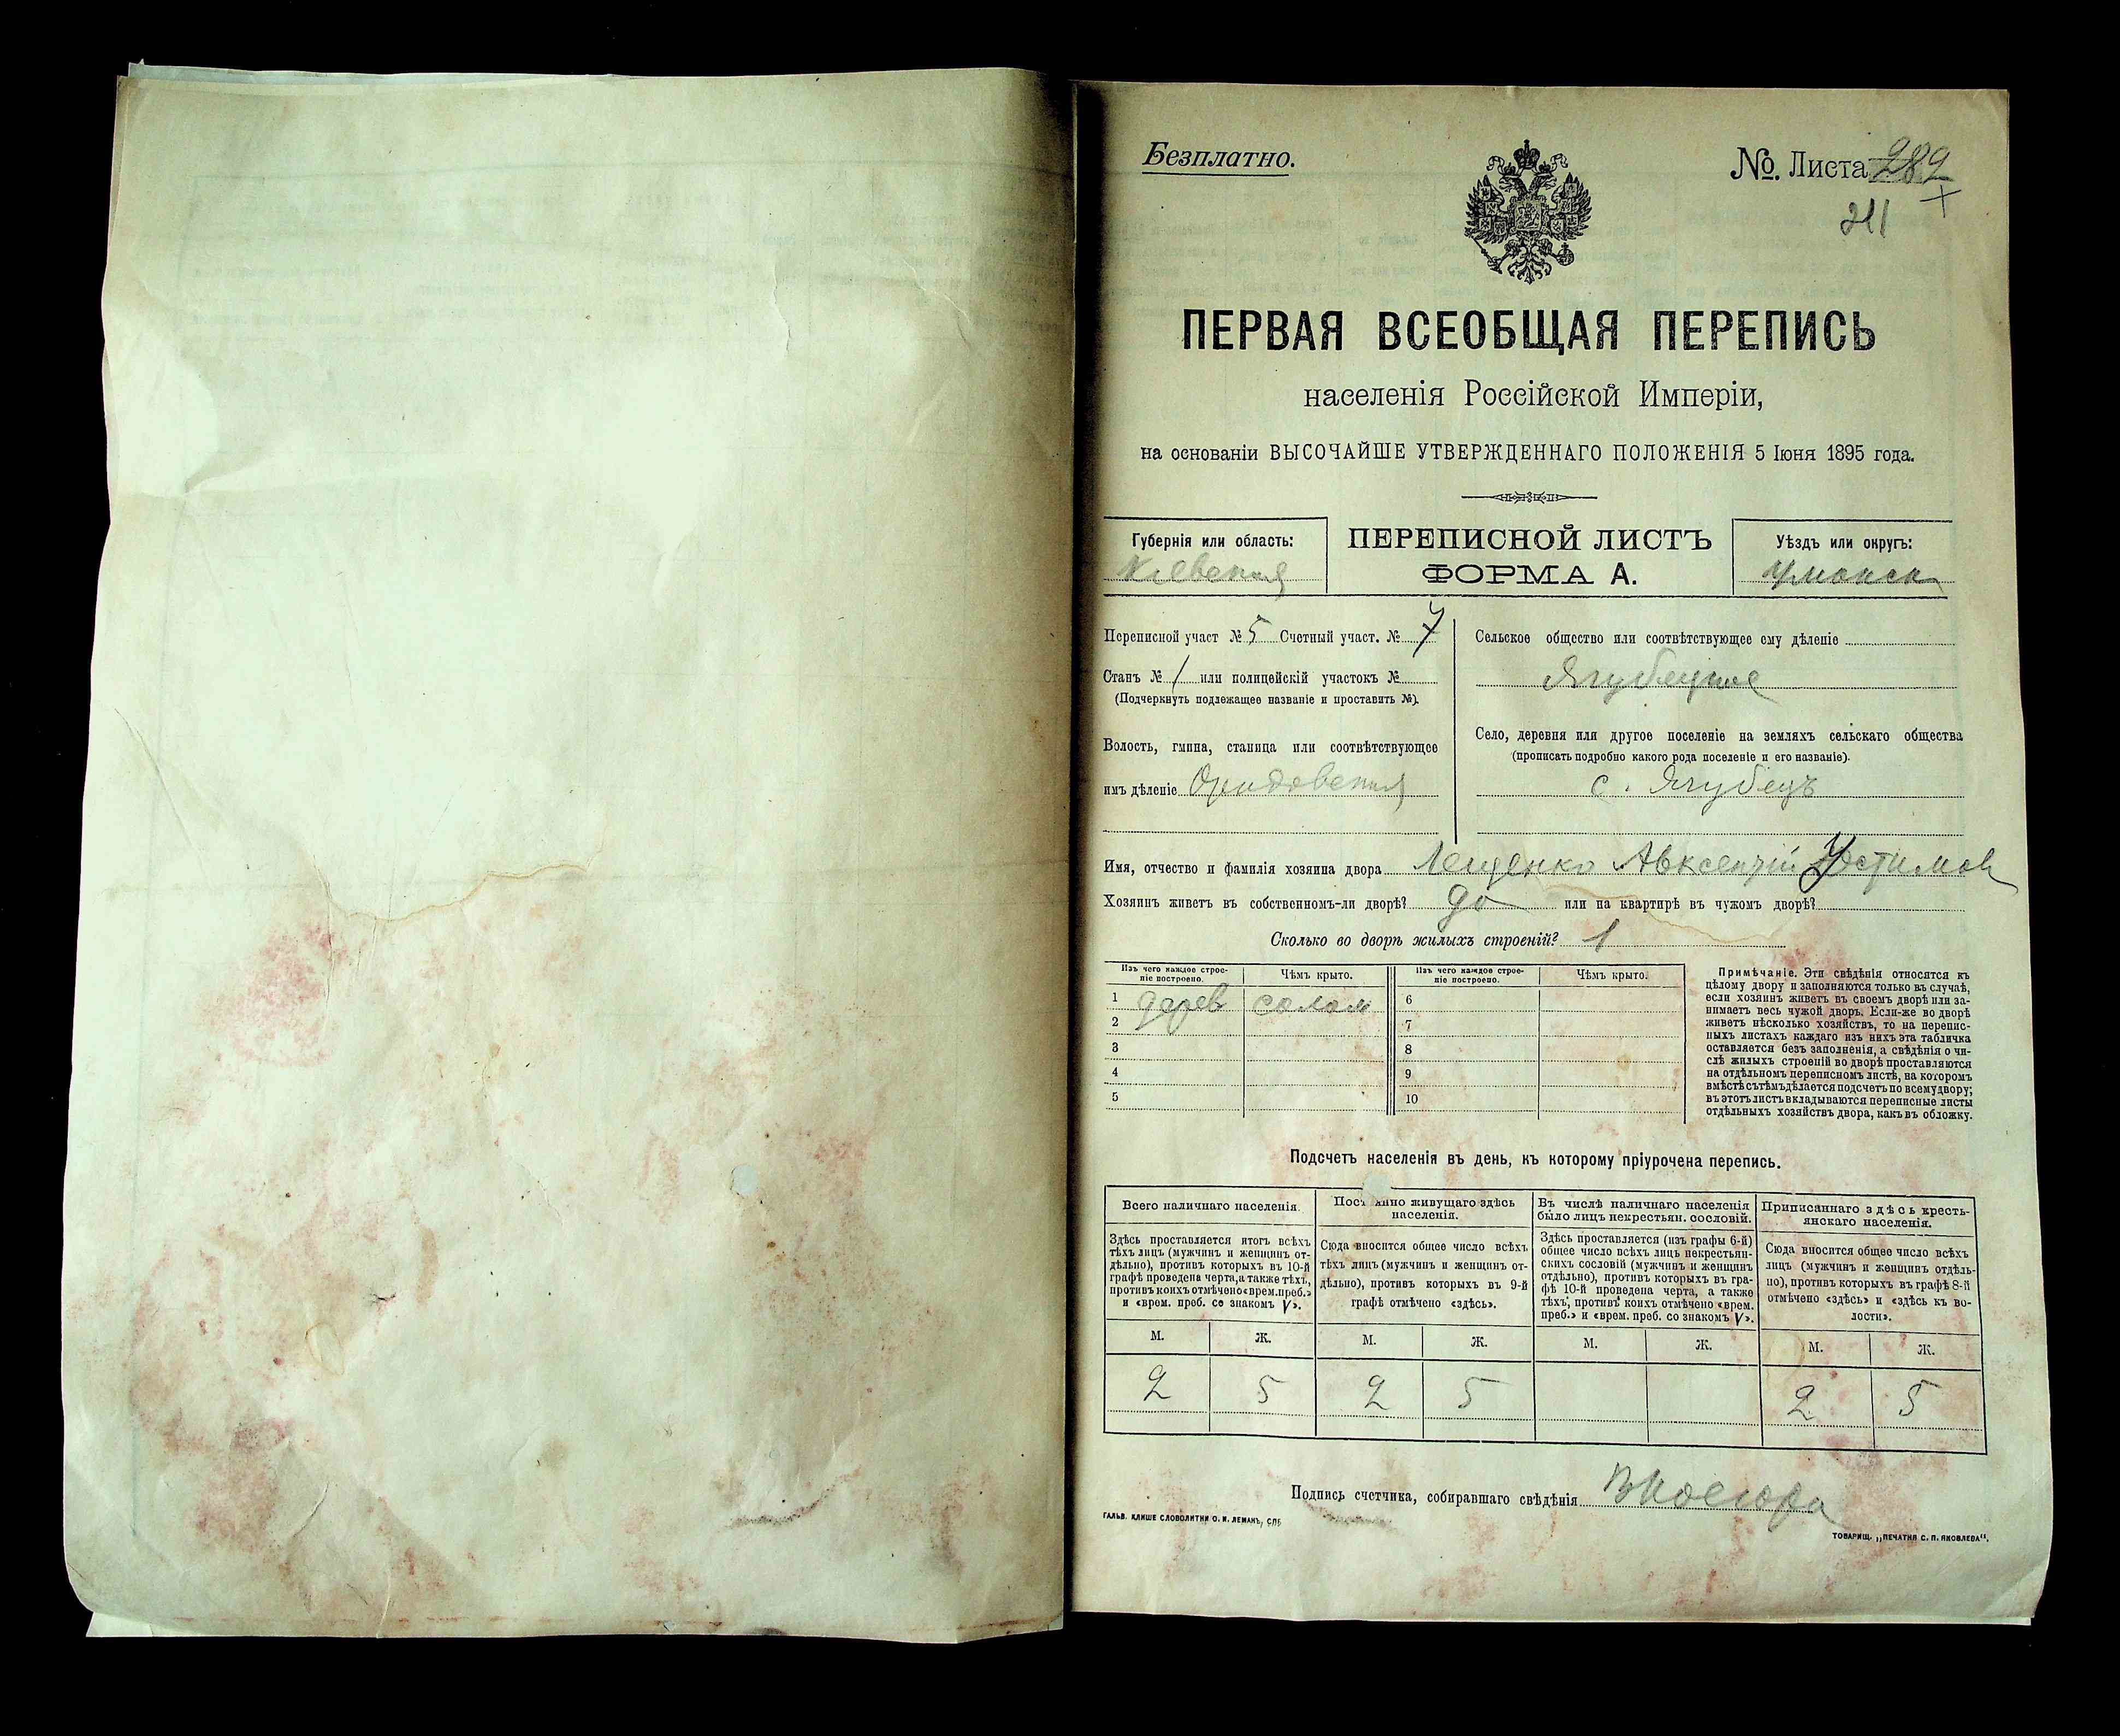 Безплатно.
№. Листа 282
211
ПЕРВАЯ ВСЕОБЩАЯ ПЕРЕПИСЬ
населенія Россійской Имперіи,
на основаніи ВЫСОЧАЙШЕ УТВЕРЖДЕННАГО ПОЛОЖЕНІЯ 5 Іюня 1895 года.
Губернія или область:
Кіевская
ПЕРЕПИСНОЙ ЛИСТЪ
ФОРМА А.
Уѣздъ или округъ:
Уманск
Переписной участ № 5 Счетный участ. № 7
Станъ № 1 или полицейскій участокъ №
(Подчеркнуть подлежащее названіе и проставить №).
Волость, гмина, станица или соотвѣтствующее
имъ дѣленіе
Сельское общество или соотвѣтствующее ему дѣленіе
Ягубецкое
Село, деревня или другое поселеніе на земляхъ сельскаго общества
(прописать подробно какого рода поселеніе и его названіе).
с. Ягубецъ
Имя, отчество и фамилія хозяина двора Лещенко Авксентій Устимов
Хозяинъ живетъ въ собственномъ-ли дворѣ? да или на квартирѣ въ чужомъ дворѣ?
Сколько во дворѣ жилыхъ строеній? 1
Изъ чего каждое строе-
ніе построено.
Чѣмъ крыто.
1 дерев солом
2
3
4
5
Изъ чего каждое строе-
ніе построено.
Чѣмъ крыто.
6
7
8
9
10
Примѣчаніе. Эти свѣдѣнія относятся къ
цѣлому двору и заполняются только въ случаѣ,
если хозяинъ живетъ въ своемъ дворѣ или за-
нимаетъ весь чужой дворъ. Если-же во дворѣ
живетъ нѣсколько хозяйствъ, то на перепис-
ныхъ листахъ каждаго изъ нихъ эта табличка
оставляется безъ заполненія, а свѣдѣнія о чи-
слѣ жилыхъ строеній во дворѣ проставляются
на отдѣльномъ переписномъ листѣ, на которомъ
вмѣстѣ съ тѣмъ дѣлается подсчетъ по всему двору;
въ этотъ листъ вкладываются переписные листы
отдѣльныхъ хозяйствъ двора, какъ въ обложку.
Подсчетъ населенія въ день, къ которому пріурочена перепись.
Всего наличнаго населенія.
Здѣсь проставляется итогъ всѣхъ
тѣхъ лицъ (мужчинъ и женщинъ от-
дѣльно), противъ которыхъ въ 10-й
графѣ проведена черта, а также тѣхъ,
противъ коихъ отмѣчено «врем. преб.»
и «врем. преб. со знакомъ V».
М. Ж.
2 5
Пост нно живущаго здѣсь
населенія.
Сюда вносится общее число всѣхъ
тѣхъ лицъ (мужчинъ и женщинъ от-
дѣльно), противъ которыхъ въ 9-й
графѣ отмѣчено «здѣсь».
М. Ж.
2 5
Въ числѣ наличнаго населенія
было лицъ некрестьян. сословій.
Здѣсь проставляется (изъ графы 6-й)
общее число всѣхъ лицъ некрестьян-
скихъ сословій (мужчинъ и женщинъ
отдѣльно), противъ которыхъ въ гра-
фѣ 10-й проведена черта, а также
тѣхъ, противъ коихъ отмѣчено «врем.
преб.» и «врем. преб. со знакомъ V».
М. Ж.
Приписаннаго здѣсь кресть-
янскаго населенія.
Сюда вносится общее число всѣхъ
лицъ (мужчинъ и женщинъ отдѣль-
но), противъ которыхъ въ графѣ 8-й
отмѣчено «здѣсь» и «здѣсь къ во-
лости».
М. Ж.
2 5
Подпись счетчика, собиравшаго свѣдѣнія
ГАЛЬВ. КЛИШЕ СЛОВОЛИТНИ О. И. ЛЕМАНЪ, СПБ
ТОВАРИЩ. „ПЕЧАТНЯ С. П. ЯКОВЛЕВА“.